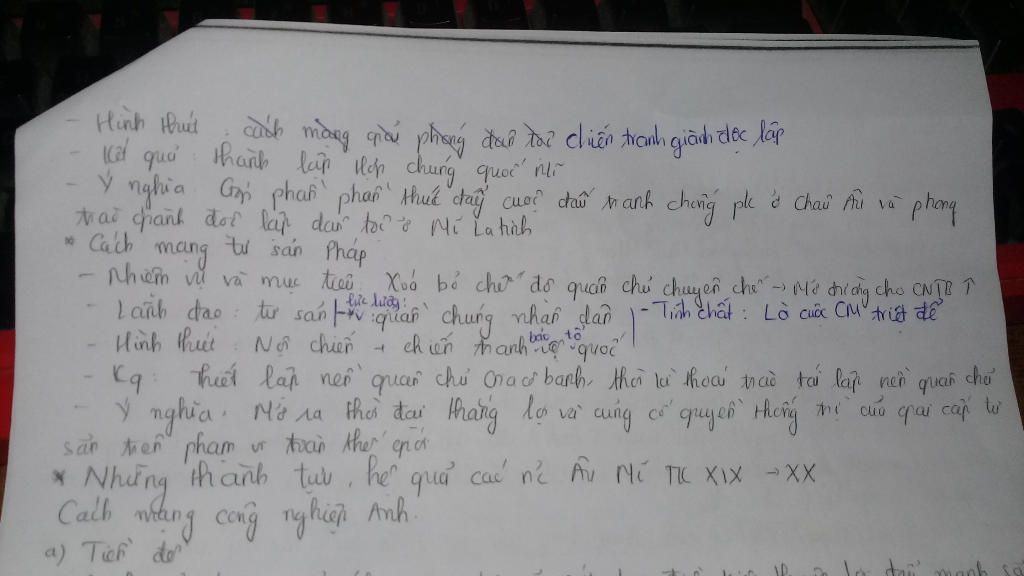 - Hình thức : cách mạng giải phóng dân tộc chiến tranh giành độc lập
- Kết quả : thành lập Hợp chúng quốc Mĩ
- Ý nghĩa : Góp phần phần thúc đẩy cuộc đấu tranh chống pk ở Châu Âu và phong
trào giành độc lập dân tộc ở Mĩ Latinh
* Cách mạng tư sản Pháp
- Nhiệm vụ và mục tiêu : Xoá bỏ chế độ quân chủ chuyên chế → Mở đường cho CNTB ↑
- Lãnh đạo : tư sản lực lượng: quần chúng nhân dân - Tính chất : Là cuộc CM triệt để
- Hình thức : Nội chiến + chiến tranh bảo vệ tổ quốc
- Kq : Thiết lập nền quân chủ , thời kì thoái trào tái lập nền quân chủ
- Ý nghĩa : Mở ra thời đại thắng lợi và củng cố quyền thống trị của giai cấp tư
sản trên phạm vi toàn thế giới
* Những thành tựu , hệ quả các nc Âu Mĩ TK XIX → XX
Cách mạng công nghiệp Anh.
a) Tiền đề